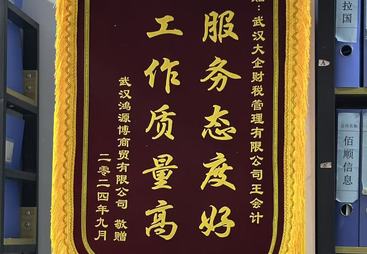 赠：武汉大企财税管理有限公司王会计
服务态度好
工作质量高
武汉鸿源博商贸有限公司 敬赠
二零二四年九月
拉国
佰顺信息